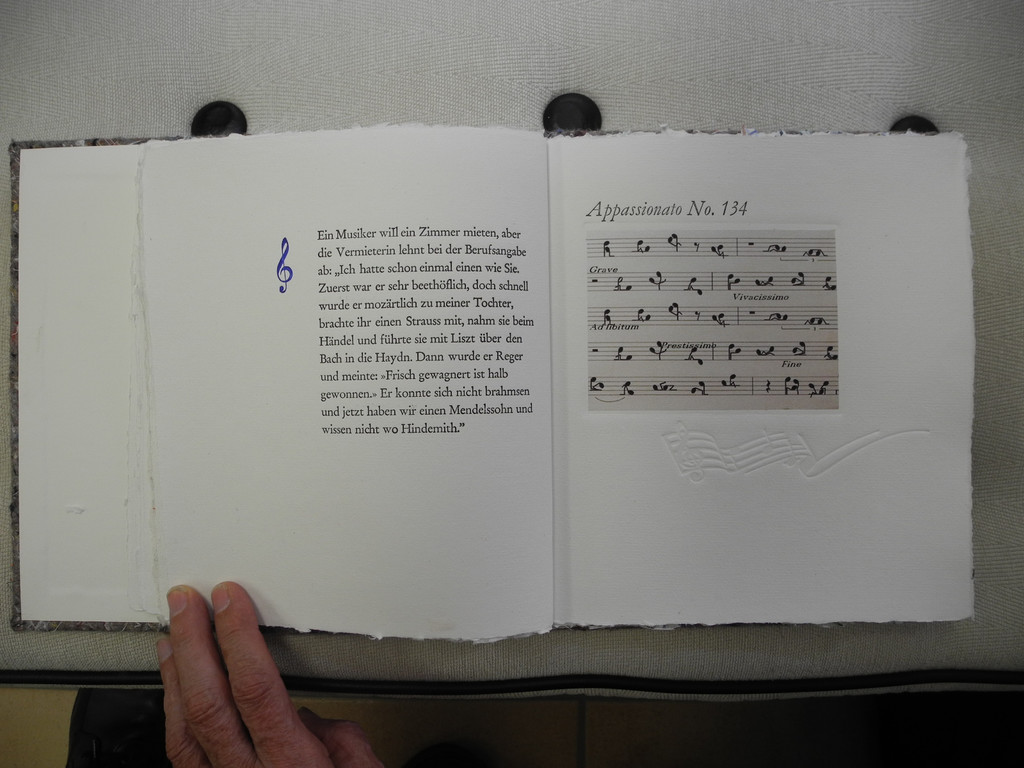 Ein Musiker will ein Zimmer mieten, aber
die Vermieterin lehnt bei der Berufsangabe
ab: „Ich hatte schon einmal einen wie Sie.
Zuerst war er sehr beethöflich, doch schnell
wurde er mozärtlich zu meiner Tochter,
brachte ihr einen Strauss mit, nahm sie beim
Händel und führte sie mit Liszt über den
Bach in die Haydn. Dann wurde er Reger
und meinte: »Frisch gewagnert ist halb
gewonnen.» Er konnte sich nicht brahmsen
und jetzt haben wir einen Mendelssohn und
wissen nicht wo Hindemith.”
Appassionato No. 134
Grave
Vivacissimo
Ad libitum
Prestissimo
Fine